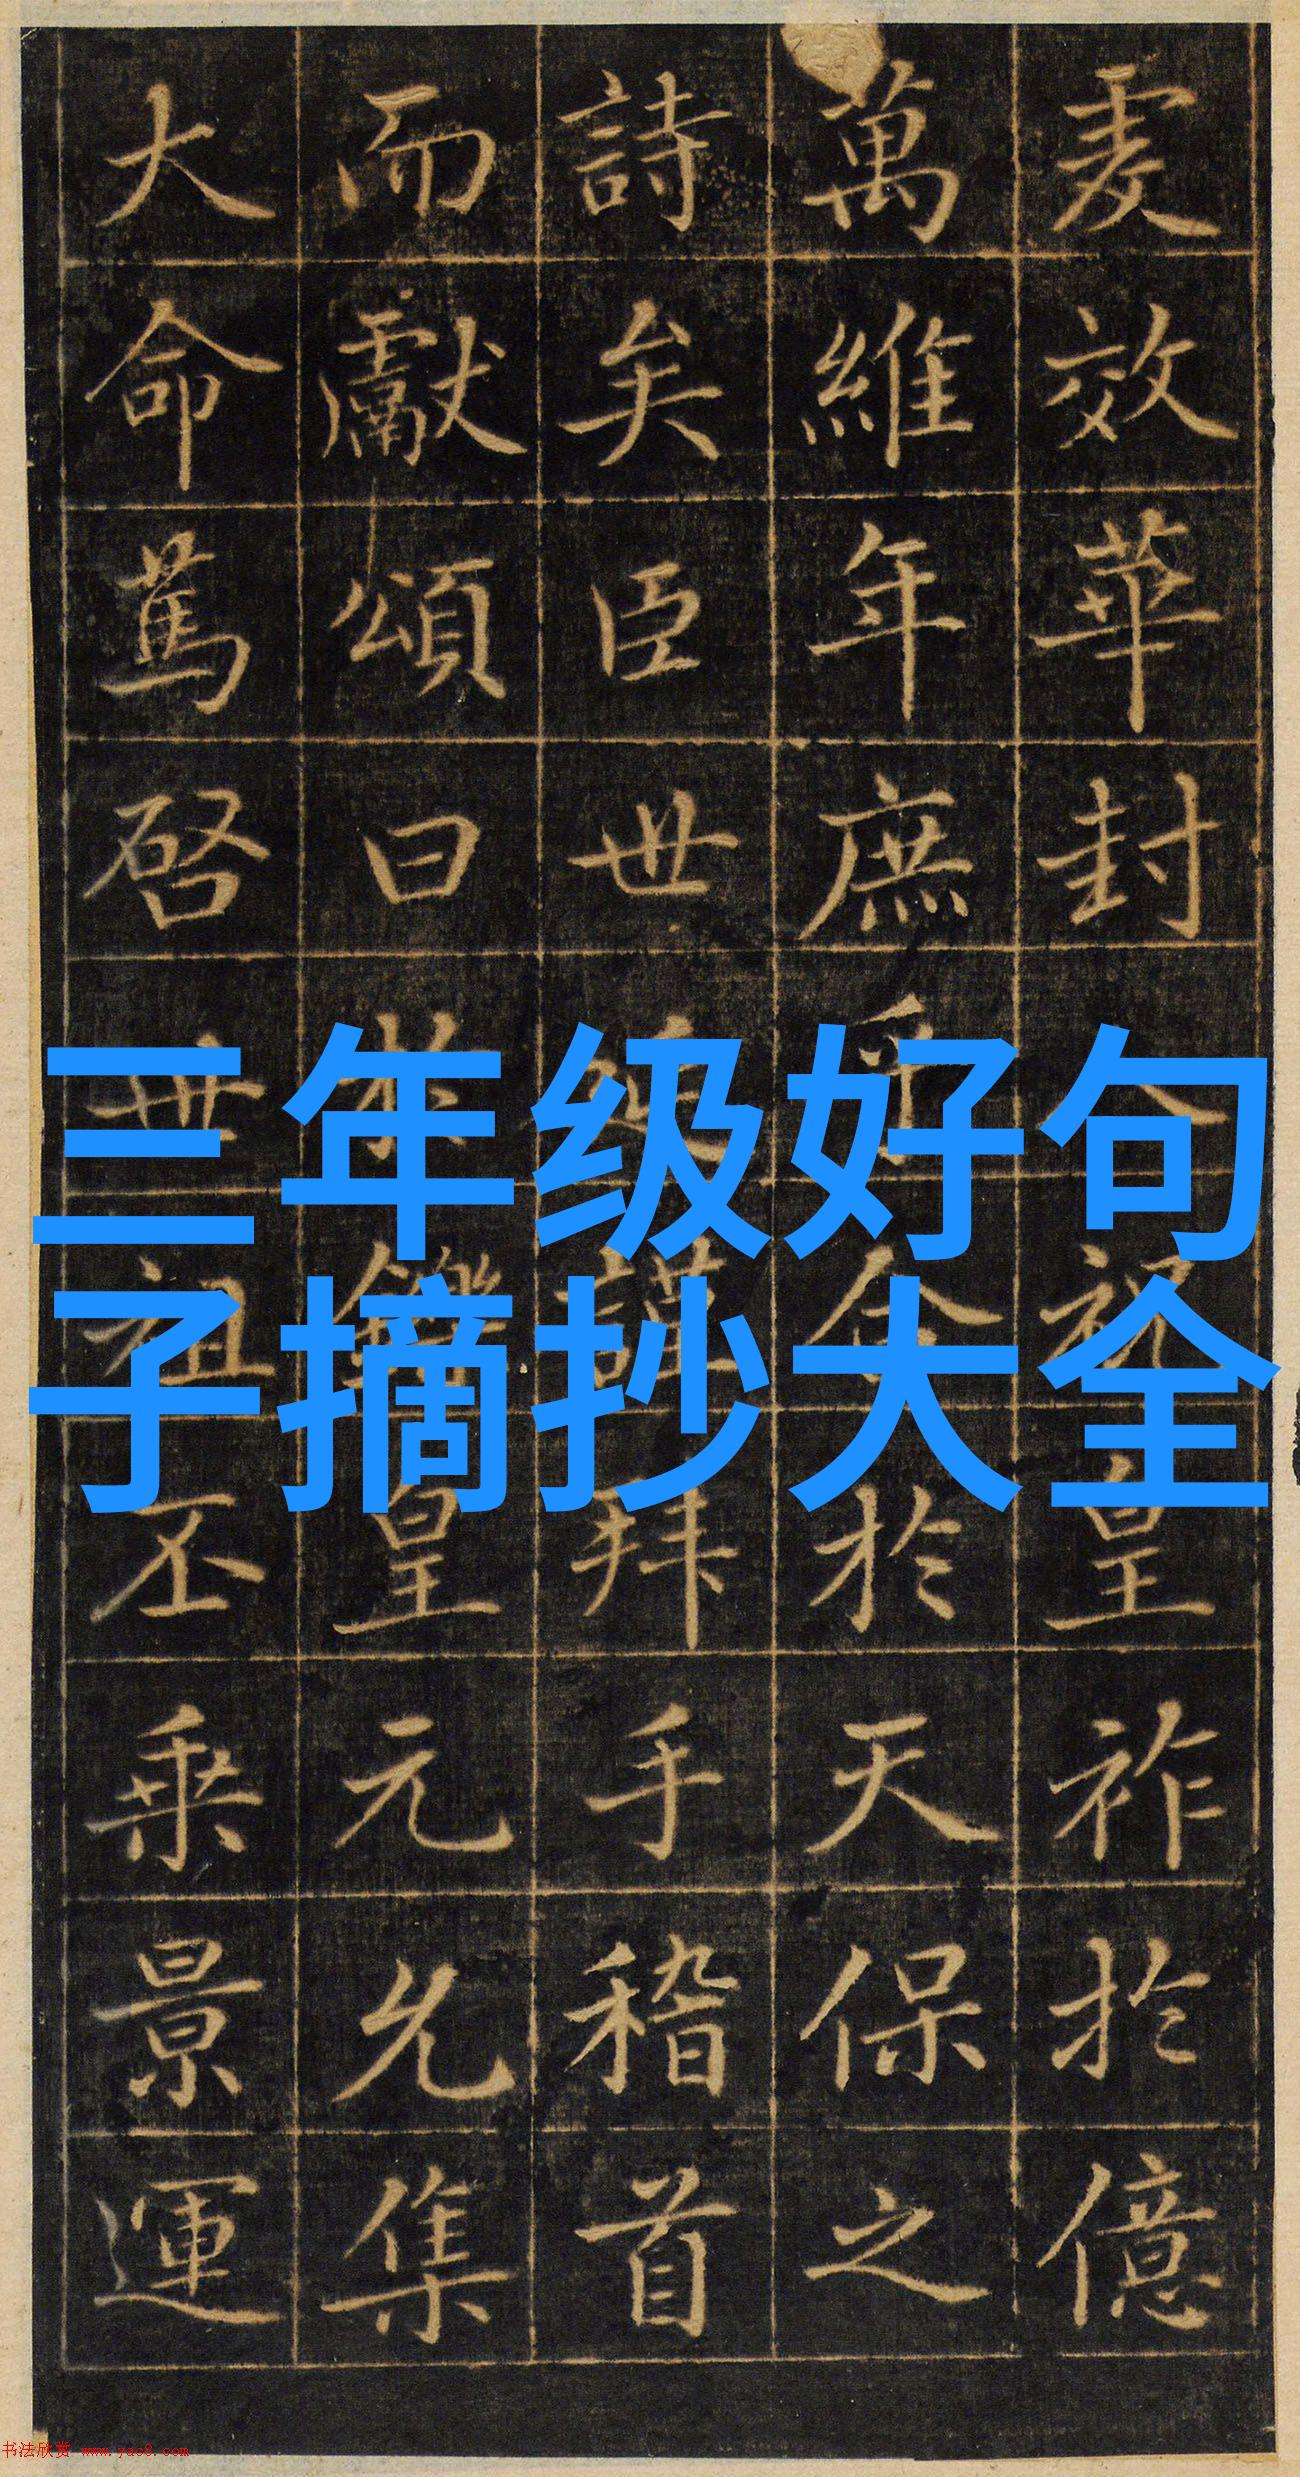 三年级好句
子摘抄大全
虔效華封人祝皇祚於億
萬維年庶乎合於天保之
詩矣臣世延謹拜手稽首
而獻頌曰於鑠皇元允集
大命篤啓世祖丕乘景運
书法欣赏 www.yac8.com